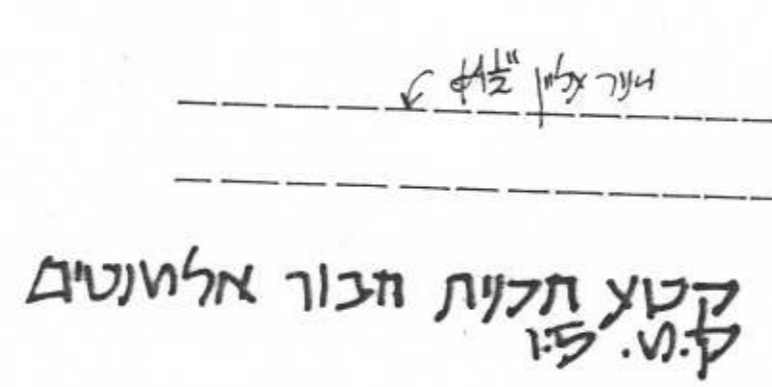 צינור עליון ⌀1½"
קטע תכנית חבור אלמנטים
ק.מ. 1:5